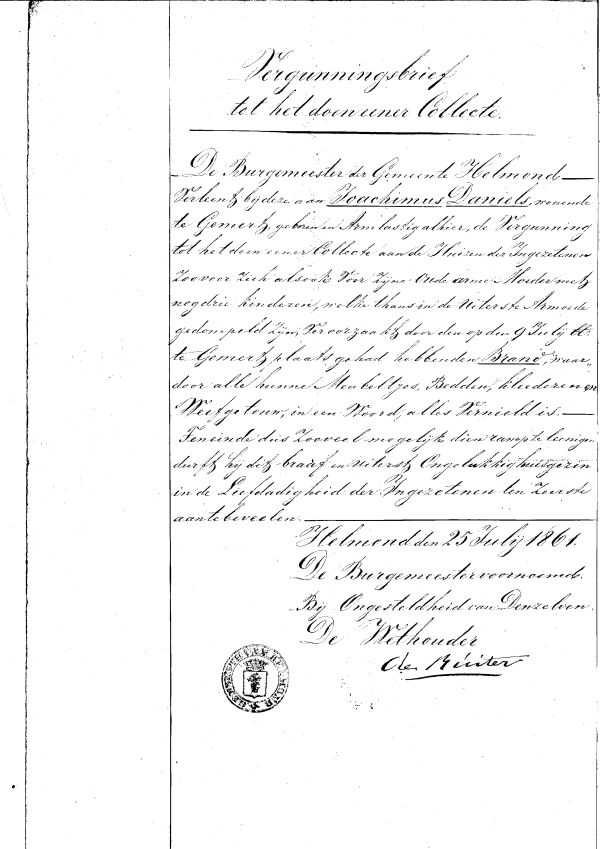 Vergunningsbrief
tot het doen eener Collecte.
De Burgemeester der Gemeente Helmond
Verleent bij deze aan Joachimus Daniels, wonende
te Gemert, geboren en Armlastig alhier, de Vergunning
tot het doen eener Collecte aan de Huizen der Ingezetenen
Zoo voor Zich alsook Voor Zijne Oude arme Moeder met
nog drie kinderen, welke thans in de Uiterste Armoede
gedompeld Zijn, Veroorzaakt door den op den 9 July ll.
te Gemert plaats gehad hebbenden Brand, waar„
door alle hunne Meubeltjes, Bedden, kleederen en
Weefgetouw, in een Woord, alles Vernield is.
Ten einde dus Zooveel mogelijk dien ramp te leenigen
durft hij dit braaf en uiterst Ongelukkig huisgezin
in de Liefdadigheid der Ingezetenen ten Zeerste
aantebeveelen.
Helmond den 25 July 1861.
De Burgemeester voornoemd.
Bij Ongesteldheid van Denzelven.
De Wethouder
de Ruiter